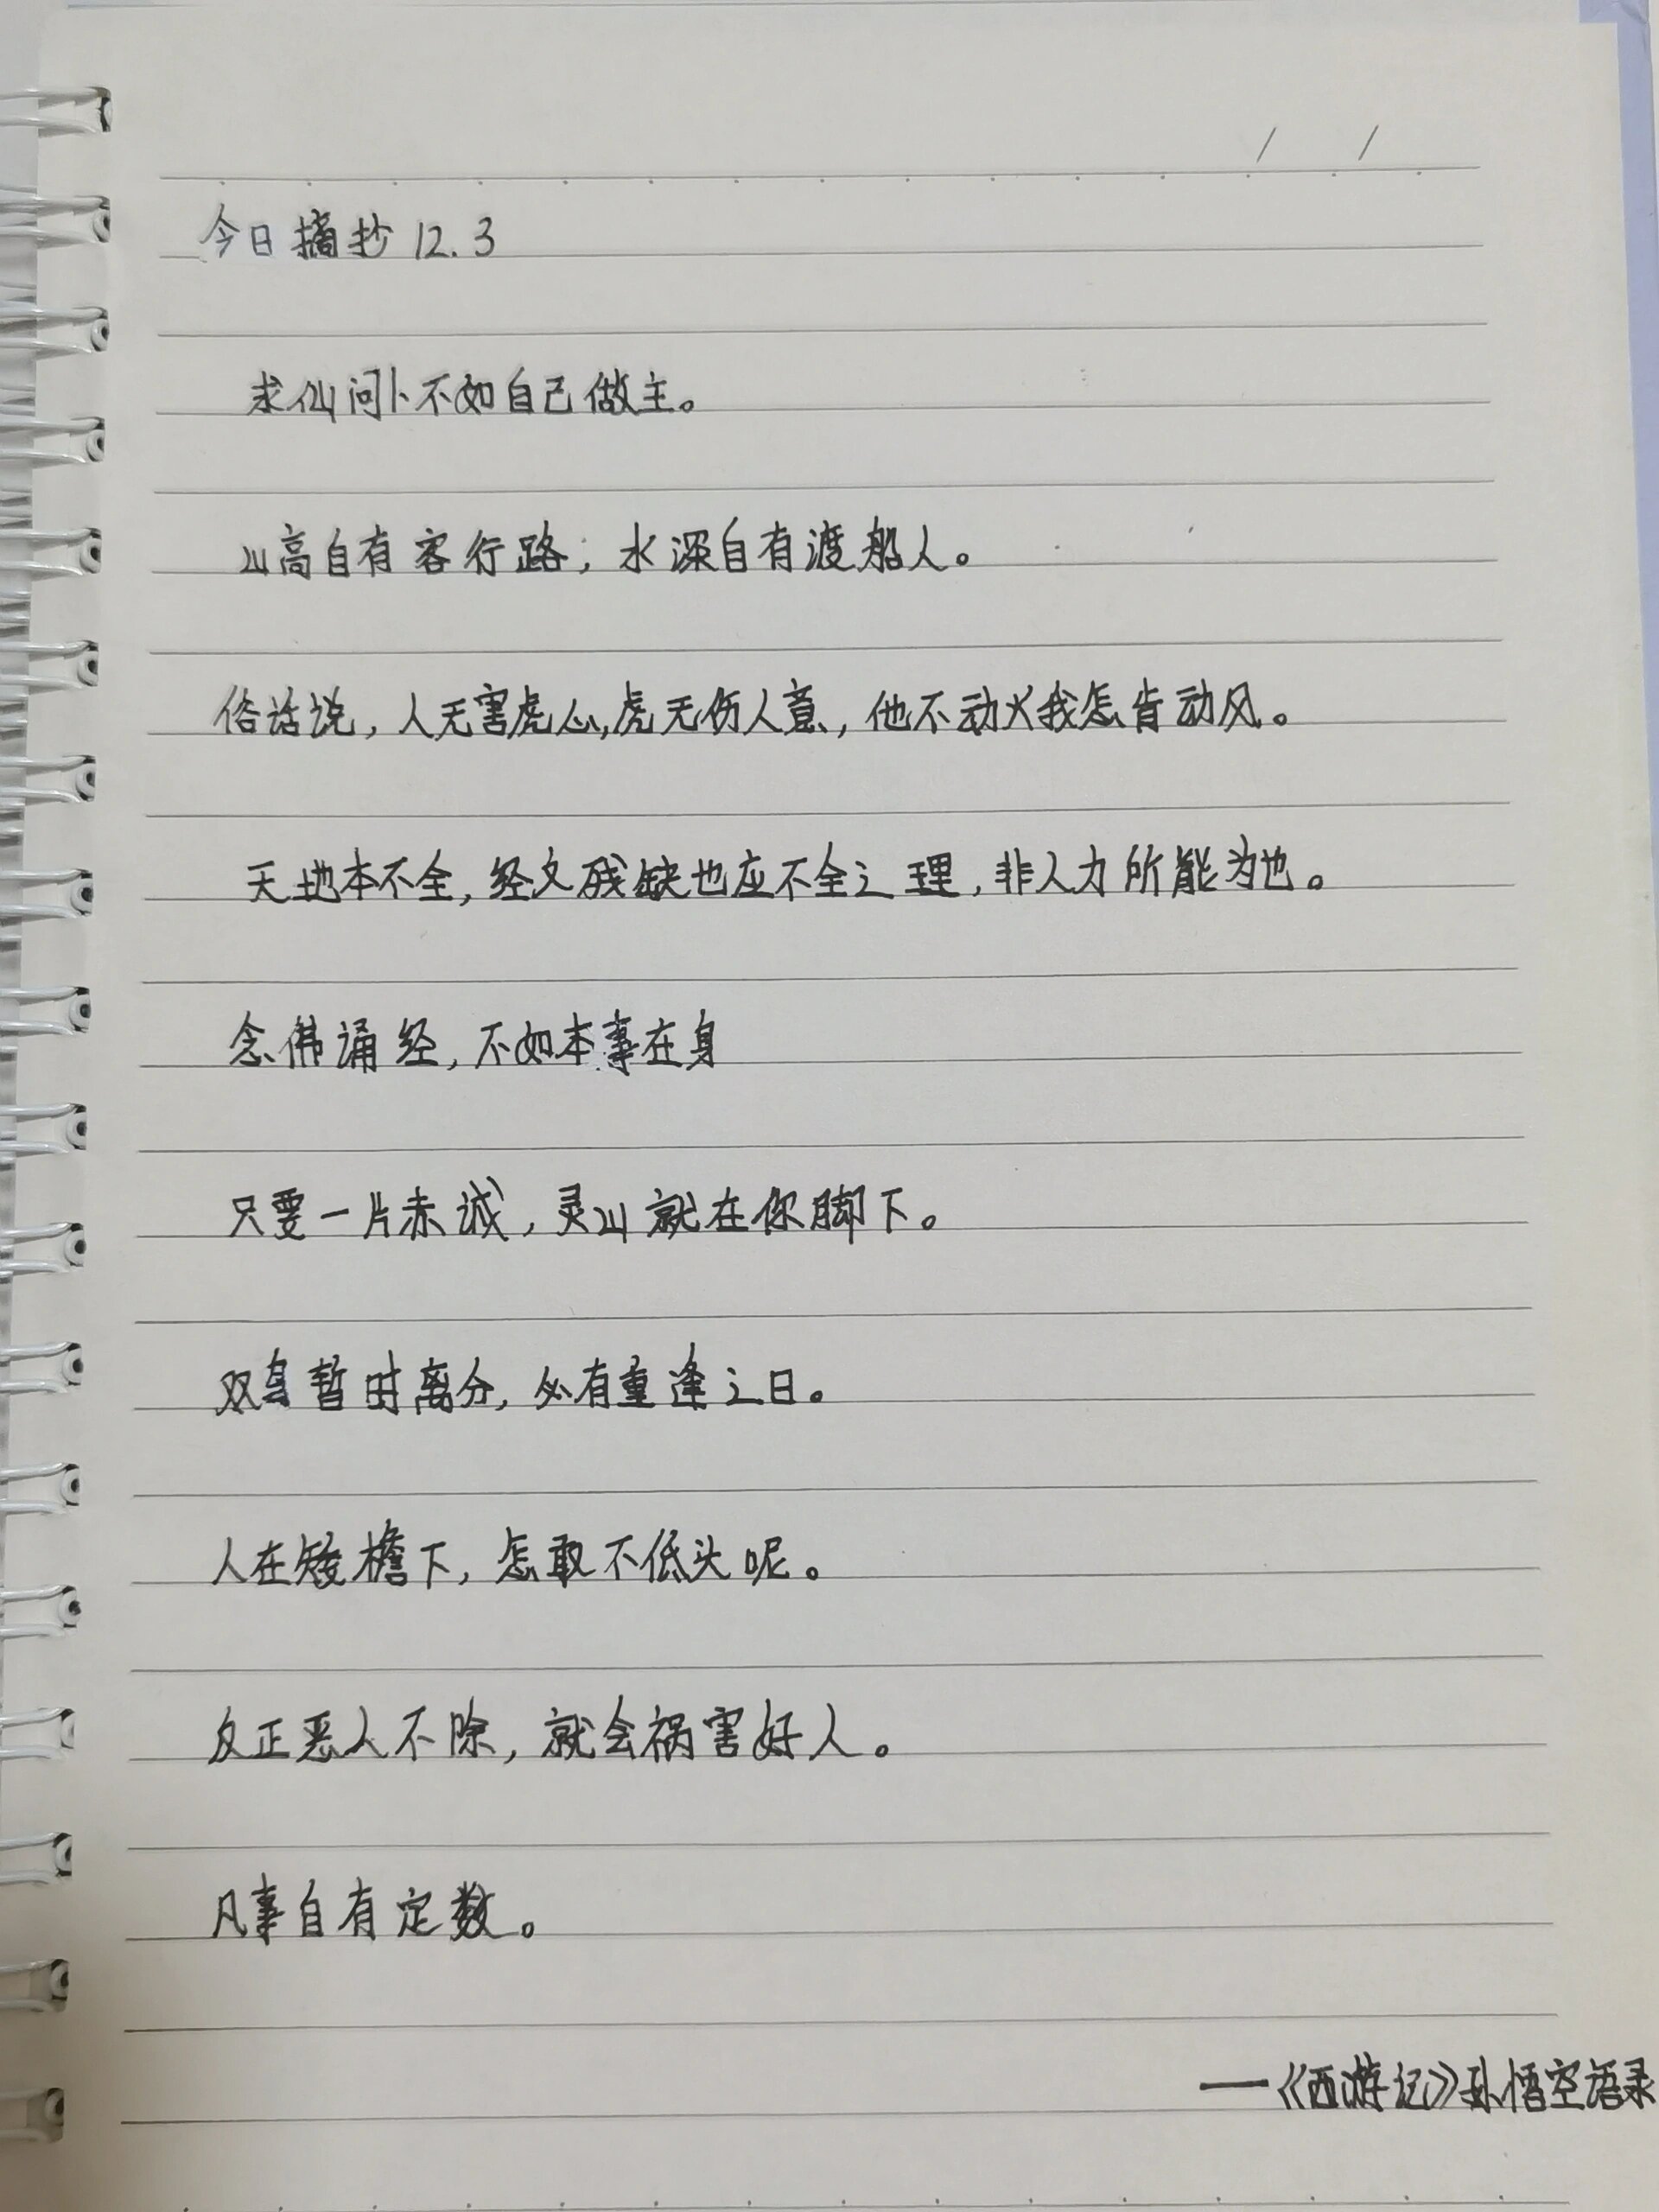 / /
今日摘抄12.3
求仙问卜不如自己做主。
山高自有客行路；水深自有渡船人。
俗话说，人无害虎心，虎无伤人意，他不动火我怎肯动风。
天地本不全，经文残缺也应不全之理，非人力所能为也。
念佛诵经，不如本事在身
只要一片赤诚，灵山就在你脚下。
双身暂时离分，必有重逢之日。
人在矮檐下，怎敢不低头呢。
反正恶人不除，就会祸害好人。
凡事自有定数。
——《西游记》孙悟空语录